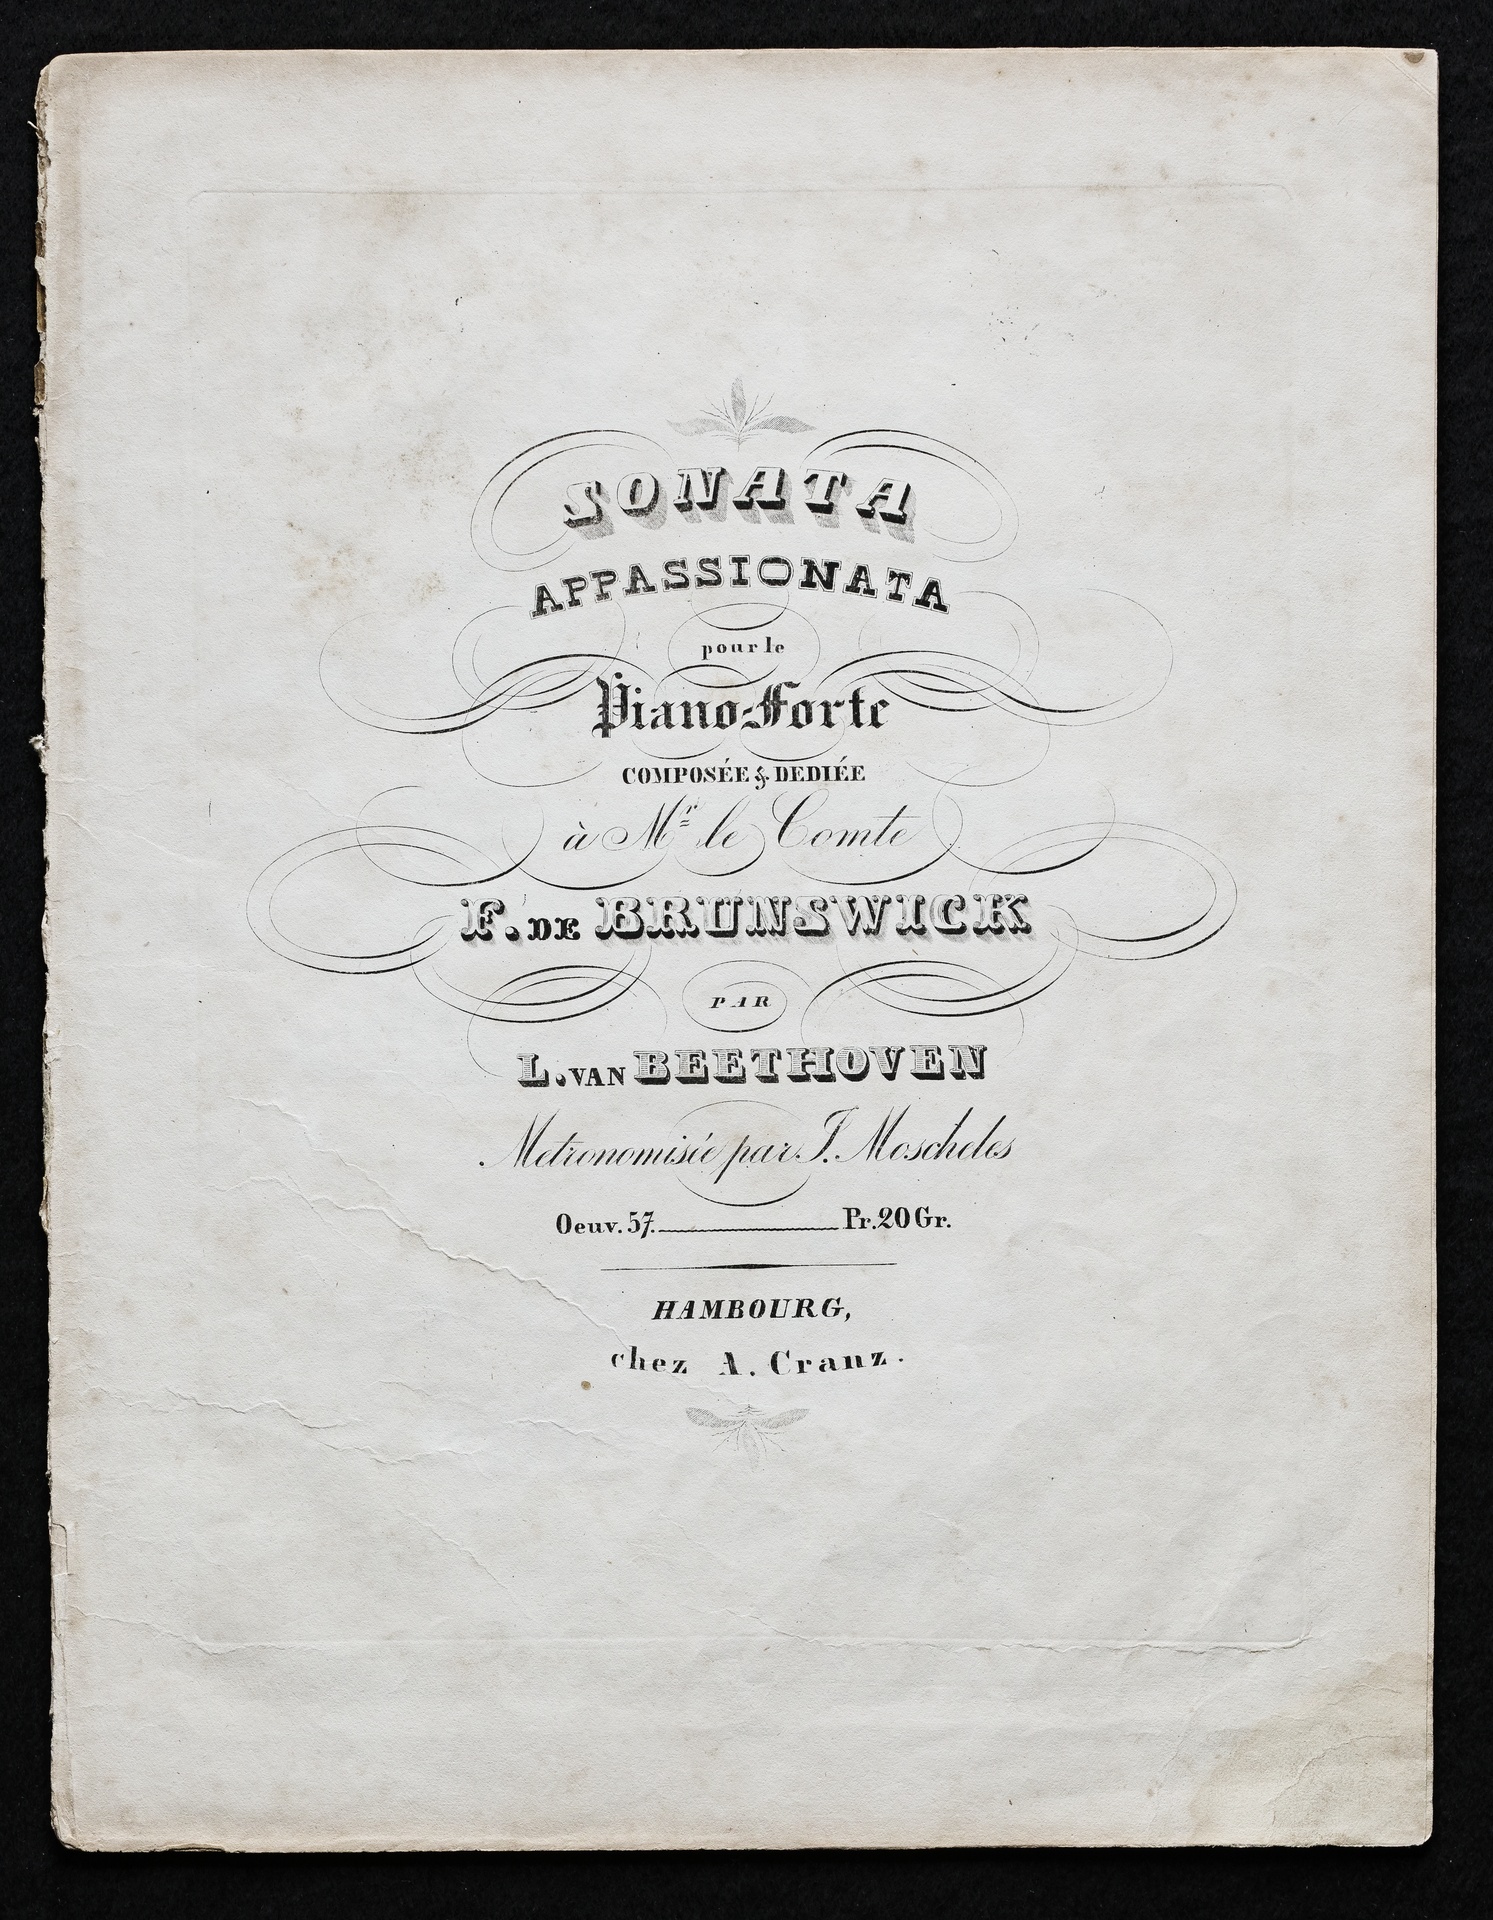 SONATA
APPASSIONATA
pour le
Piano-Forte
COMPOSÉE & DEDIÉE
à Mr le Comte
F. DE BRUNSWICK
PAR
L. VAN BEETHOVEN
Metronomisée par J. Moscheles
Oeuv. 57. Pr. 20 Gr.
HAMBOURG,
chez A. Cranz.